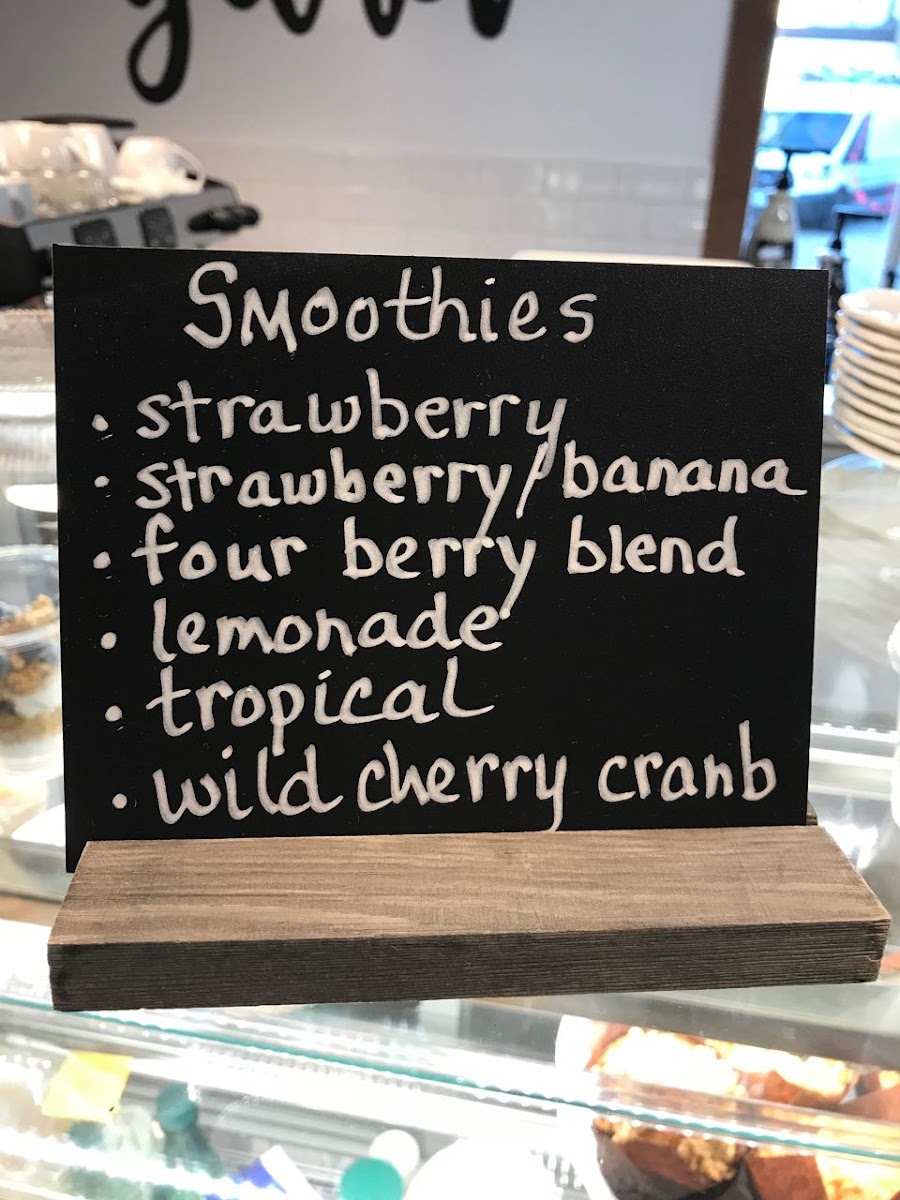 Smoothies
• strawberry
• strawberry/banana
• four berry blend
• lemonade
• tropical
• wild cherry cranb